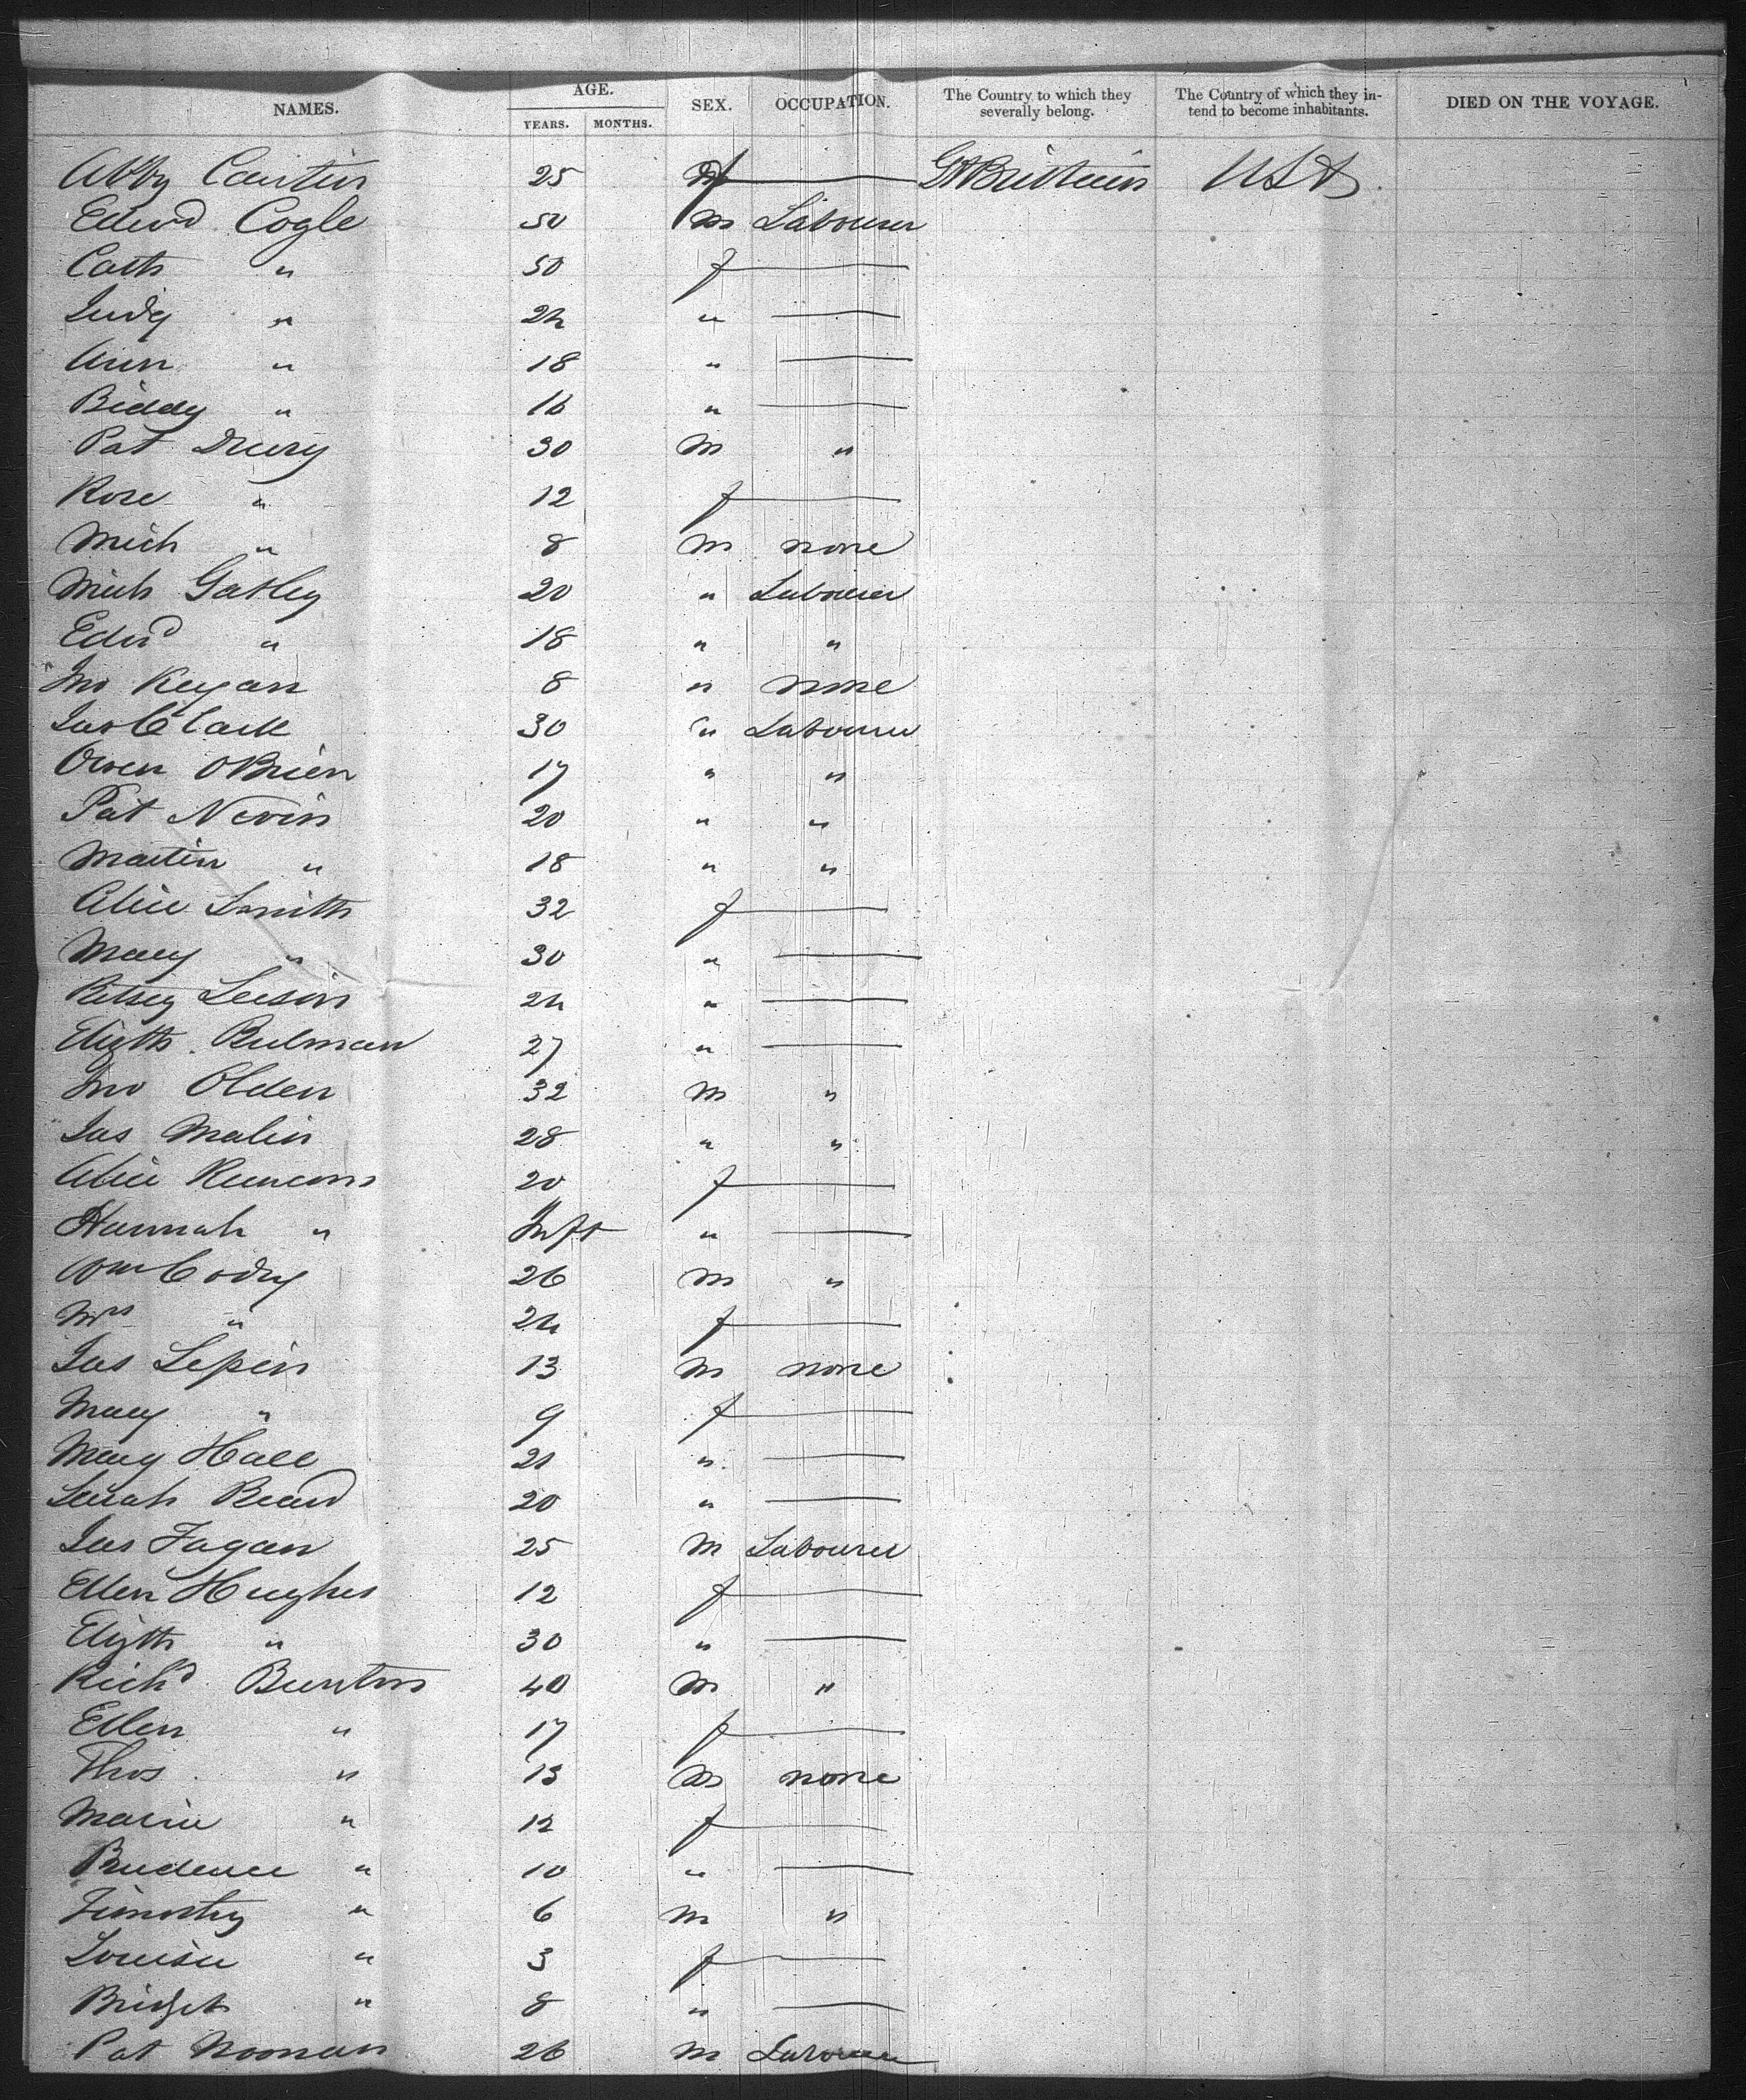 NAMES. AGE. SEX. OCCUPATION. The Country to which they severally belong. The Country of which they intend to become inhabitants. DIED ON THE VOYAGE.
YEARS. MONTHS.
Abby 25 f — Gt Britain USA
Edwd Cogle 50 m Labourer
Cath " 50 f —
Judy " 24 " —
Ann " 18 " —
Biddy " 16 " —
Pat Drury 30 m "
Rose " 12 f —
Mich " 8 m none
Mich Gatley 20 " Labourer
Edwd " 18 " "
Jno Regan 8 " none
Jas Clark 30 " Labourer
Owen OBrien 17 " "
Pat Nevin 20 " "
Martin " 18 " "
Alice Smith 32 f —
Mary " 30 " —
Betsey Leeson 24 " —
Elizth Bulman 27 " —
Jno Olden 32 m "
Jas Malin 28 " "
Alice 20 f —
Hannah " Inft " —
Wm Cody 26 m "
Mrs " 24 f —
Jas Lepin 13 m none
Mary " 9 f —
Mary Hall 21 " —
Sarah Beard 20 " —
Jas Fagan 25 m Labourer
Ellen Hughes 12 f —
Elizth " 30 " —
Richd Bunton 40 m "
Ellen " 17 f —
Thos " 13 m none
Maria " 12 f —
Prudence " 10 " —
Timothy " 6 m "
Louisa " 3 f —
Bridget " 8 " —
Pat Noonan 26 m Labourer